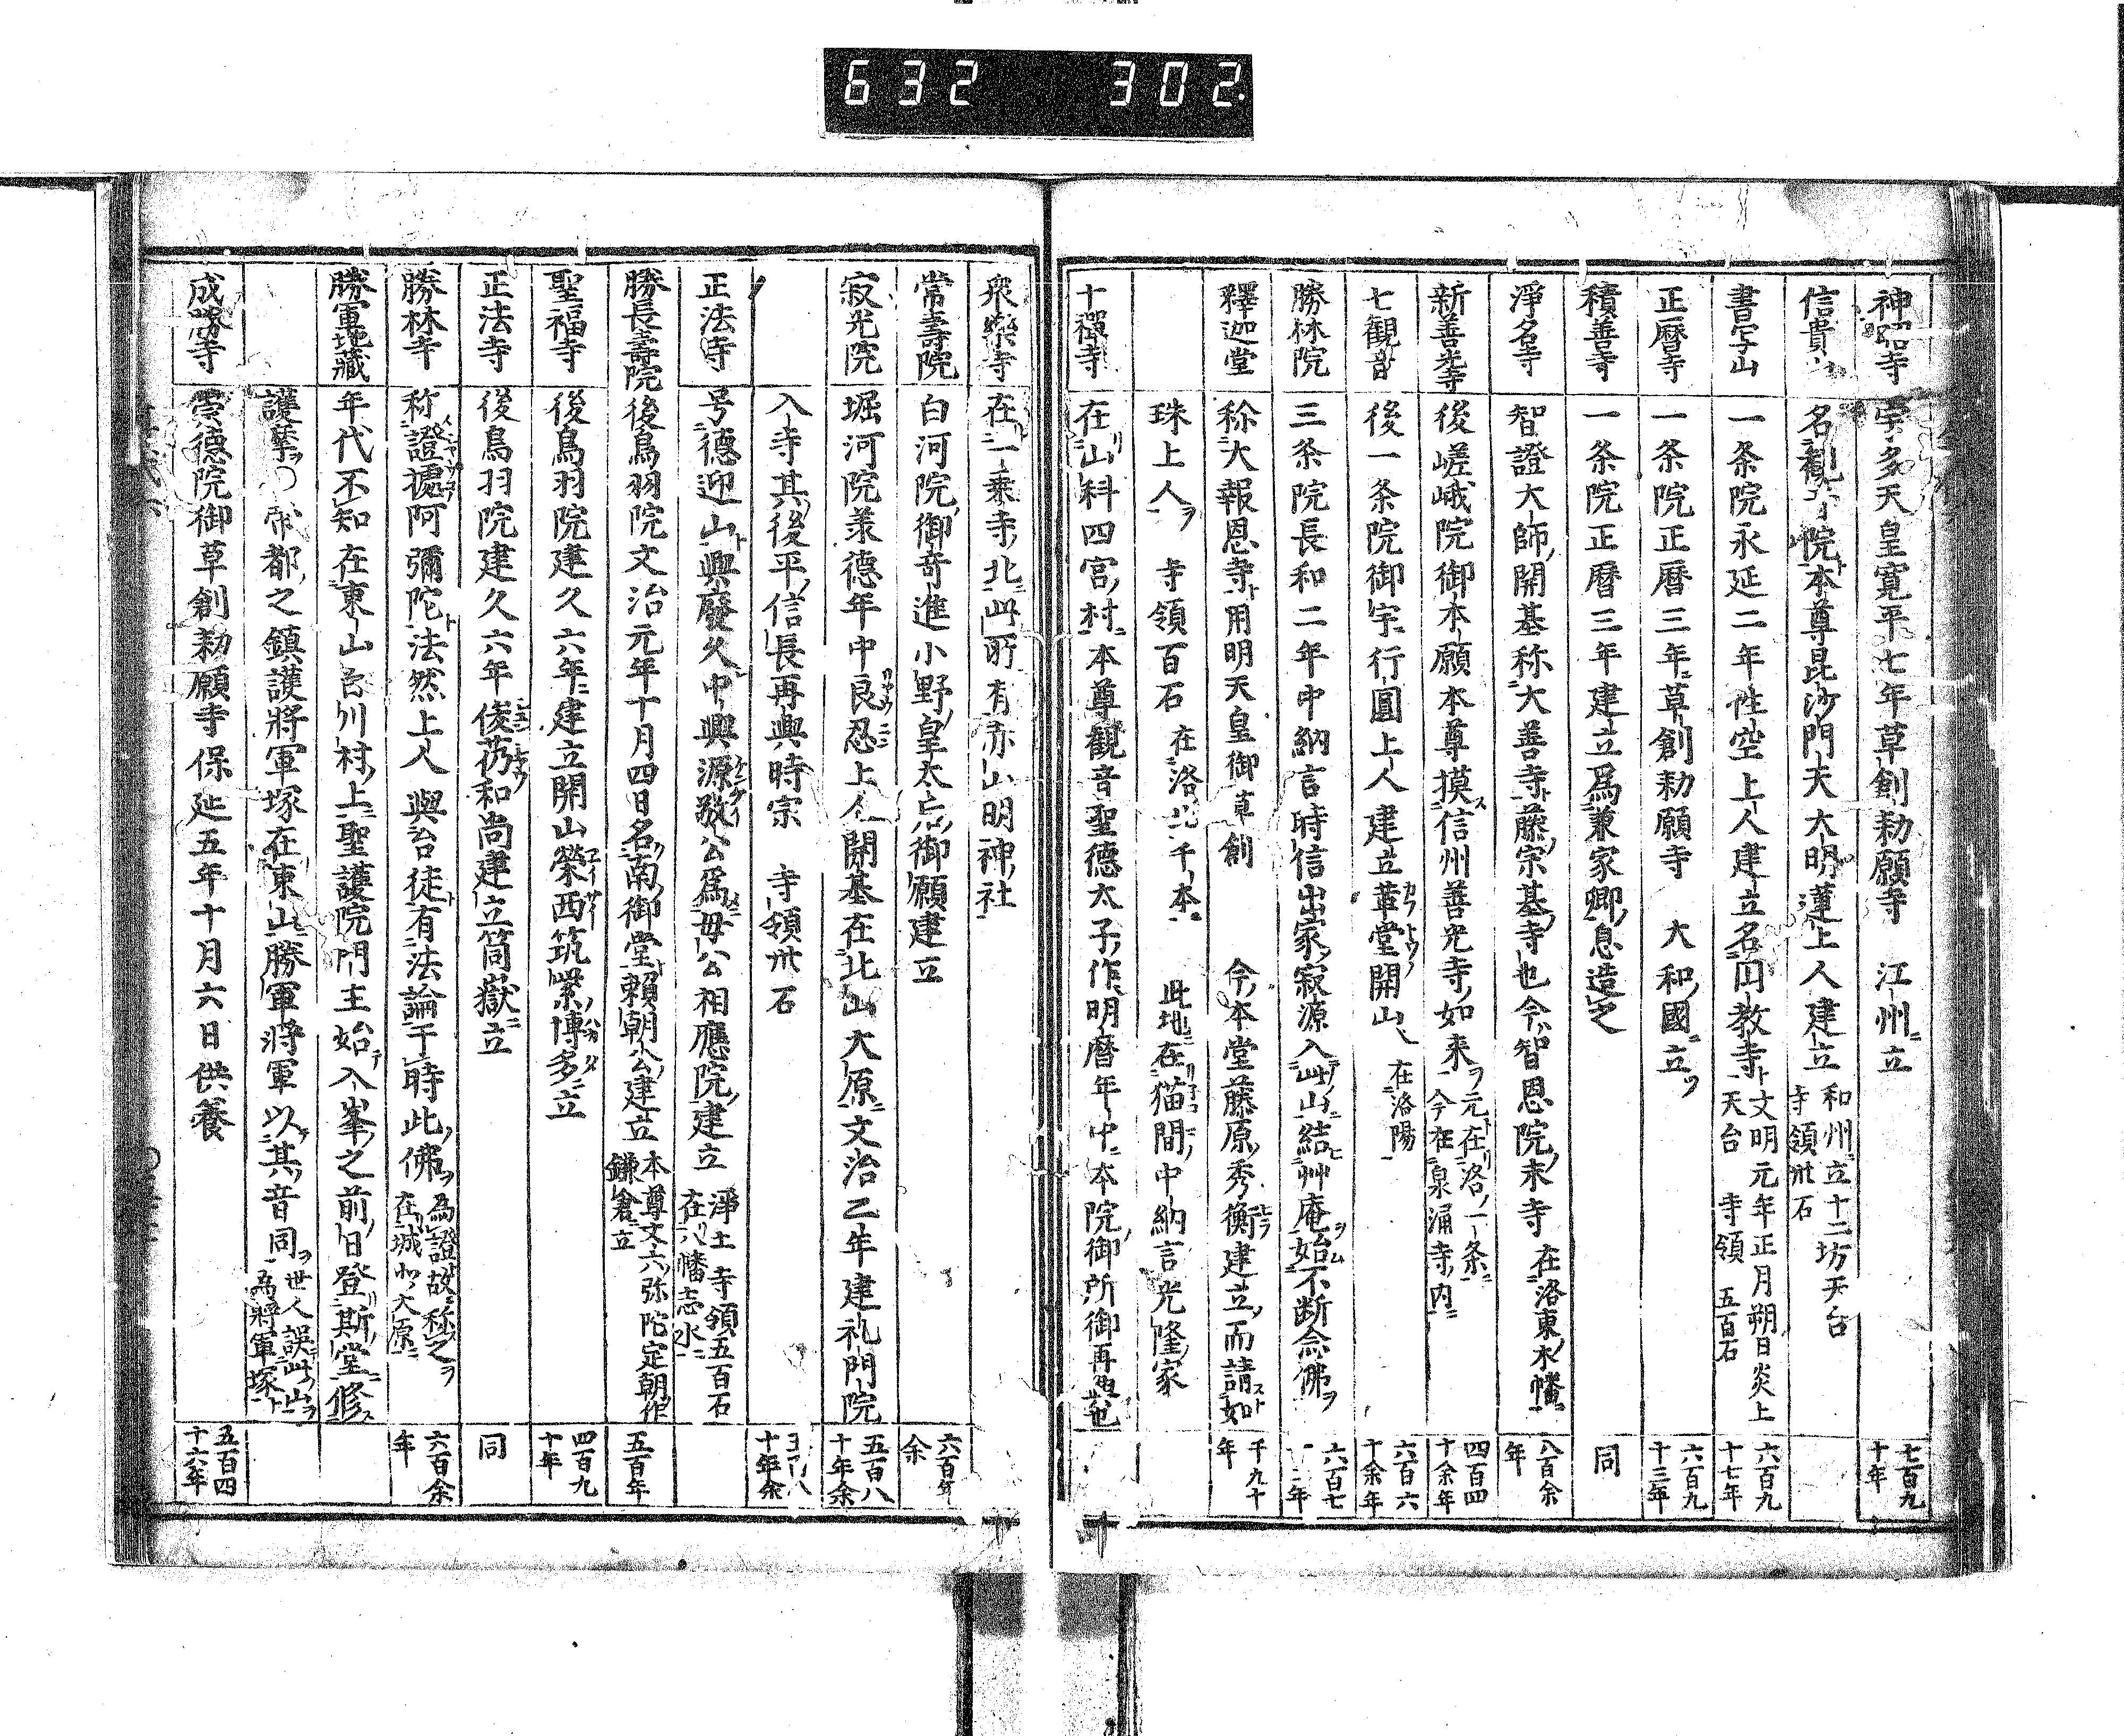 632 302.
神昭寺 宇多天皇寛平七年草創勅願寺 江州ニ立 七百九十年
信貴山 名歓喜院ト本尊毘沙門天大明蓮上人建立 和州立十二坊天台 寺領卅石
書写山 一条院永延二年性空上人建立名円教寺ト 文明元年正月朔日炎上 天台 寺領 五百石 六百九十七年
正暦寺 一条院正暦三年ニ草創勅願寺 大和ノ國ニ立ツ 六百九十三年
積善寺 一条院正暦三年建立爲兼家卿ノ息造之 同
淨名寺 智證大師ノ開基称ニ大善寺ト藤宗基ノ寺也今ハ智恩院ノ末寺 在洛東木幡ニ 八百余年
新善光寺 後嵯峨院御本願本尊摸ス信州善光寺ノ如来ヲ 元ト在リ洛ノ一条ニ 今在泉涌寺ノ内ニ 四百四十余年
七観音 後一条院御宇行圓上人建立革堂ノ開山 在洛陽ニ 六百六十余年
勝林院 三条院長和二年中納言時信出家ノ寂源入テ此ノ山ニ結ヒ艸庵ヲ始ム不断念佛ヲ 六百七十二年
釋迦堂 称ニ大報恩寺ト用明天皇御草創 今ノ本堂藤原ノ秀衡建立ノ而請スト如 千九十年
珠上人ヲ 寺領百石 在洛北千本ニ 此地在リ猫間ノ中納言光隆ノ家
十禪寺 在リ山科四宮ノ村ニ本尊観音聖德太子ノ作明暦年中ニ本院ノ御所御再興也
衆樂寺 在一乗寺ノ北ニ此所有赤山明神ノ社
常壽院 白河院ノ御寄進小野ノ皇太后ノ御願建立 六百年余
寂光院 堀河院兼德年中良忍上人開基在北山大原ニ文治乙年建礼門院 五百八十年余
入寺其ノ後平ノ信長再興時宗 寺領卅石 十年余
正法寺 号ニ德迎山ト興廢久シ中興源敬公爲ニ毋公相應院ノ建立 淨土寺領五百石 在リ八幡志水ニ
勝長壽院 後鳥羽院文治元年十月四日名ク南ノ御堂ト頼朝公ノ建立 本尊丈六ノ弥陀定朝作 鎌倉ニ立 五百年
聖福寺 後鳥羽院建久六年ニ建立開山榮西筑紫ノ博多ニ立 四百九十年
正法寺 後鳥羽院建久六年俊芿和尚建立筒嶽ニ立 同
勝林寺 称證據阿彌陀ト法然上人與台徒ト有法論于時此ノ佛 為證故ニ称之ヲ 在城北ノ大原ニ 六百余年
勝軍地藏 年代不知在東山白川村ノ上ニ聖護院門主始テ入峯ノ之前ノ日登斯ノ堂ニ修ス
護摩ヲ〇帝都ノ之鎮護將軍塚在東山ニ勝軍將軍以其ノ音同ヲ 世人誤テ此ノ山ヲ為將軍塚ト
成勝寺 崇德院御草創勅願寺保延五年十月六日供養 五百四十六年